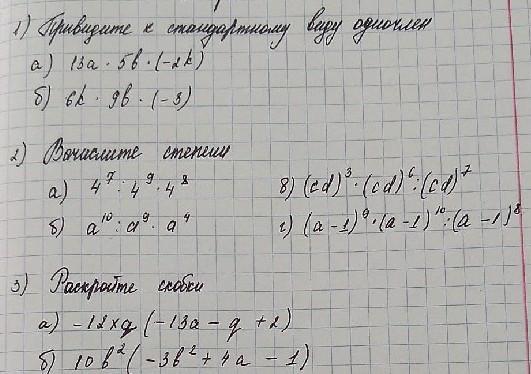 1) Привидите к стандартному виду одночлен
а) 13a · 5b · (-2k)
б) 6k · 9b · (-3)
2) Вычислите степени
а) 4⁷ : 4⁹ · 4⁸ в) (cd)³ · (cd)⁶ : (cd)⁷
б) a¹⁰ : a⁹ · a⁴ г) (a - 1)⁹ · (a - 1)¹⁰ : (a - 1)⁸
3) Раскройте скобки
а) -12xy (-13a - y + 2)
б) 10b² (-3b² + 4a - 1)